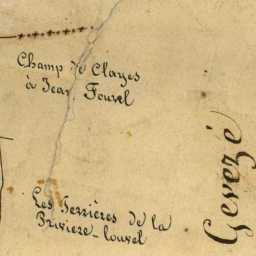 Champ de Clayes
à Jean Fouvel
Les Perrières de la
Privière-louvel
Gevezé